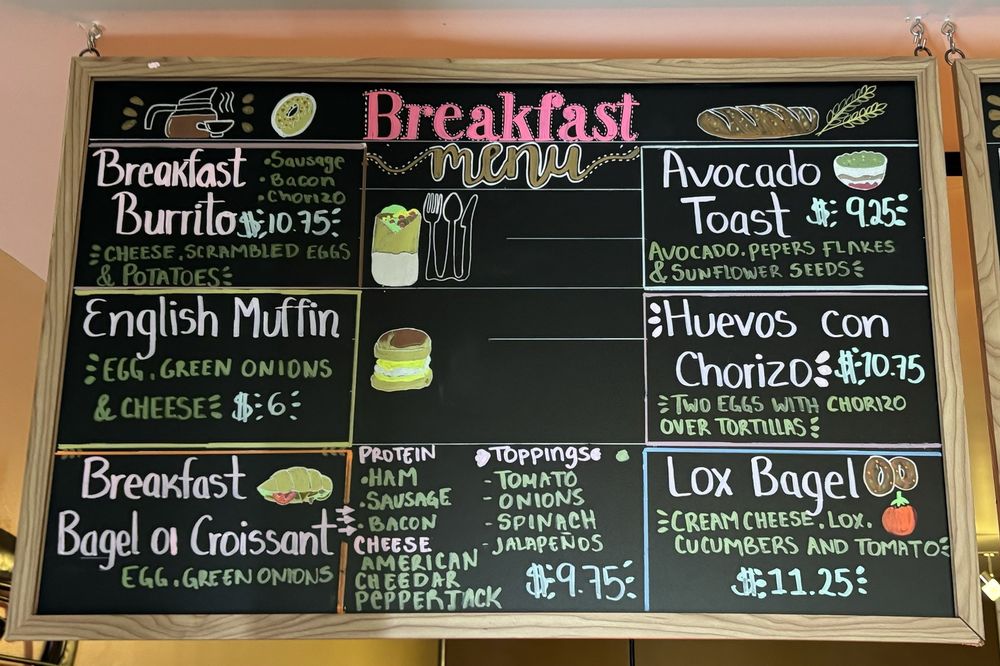 Breakfast
menu
Breakfast
Burrito $10.75
•Sausage
•Bacon
•Chorizo
CHEESE, SCRAMBLED EGGS
& POTATOES
English Muffin
EGG, GREEN ONIONS
& CHEESE $6
Breakfast
Bagel or Croissant
EGG, GREEN ONIONS
PROTEIN
•HAM
•SAUSAGE
•BACON
CHEESE
AMERICAN
CHEEDAR
PEPPERJACK
Toppings
-TOMATO
-ONIONS
-SPINACH
-JALAPEÑOS
$9.75
Avocado
Toast $9.25
AVOCADO, PEPERS FLAKES
& SUNFLOWER SEEDS
Huevos con
Chorizo $10.75
TWO EGGS WITH CHORIZO
OVER TORTILLAS
Lox Bagel
CREAM CHEESE, LOX,
CUCUMBERS AND TOMATO
$11.25